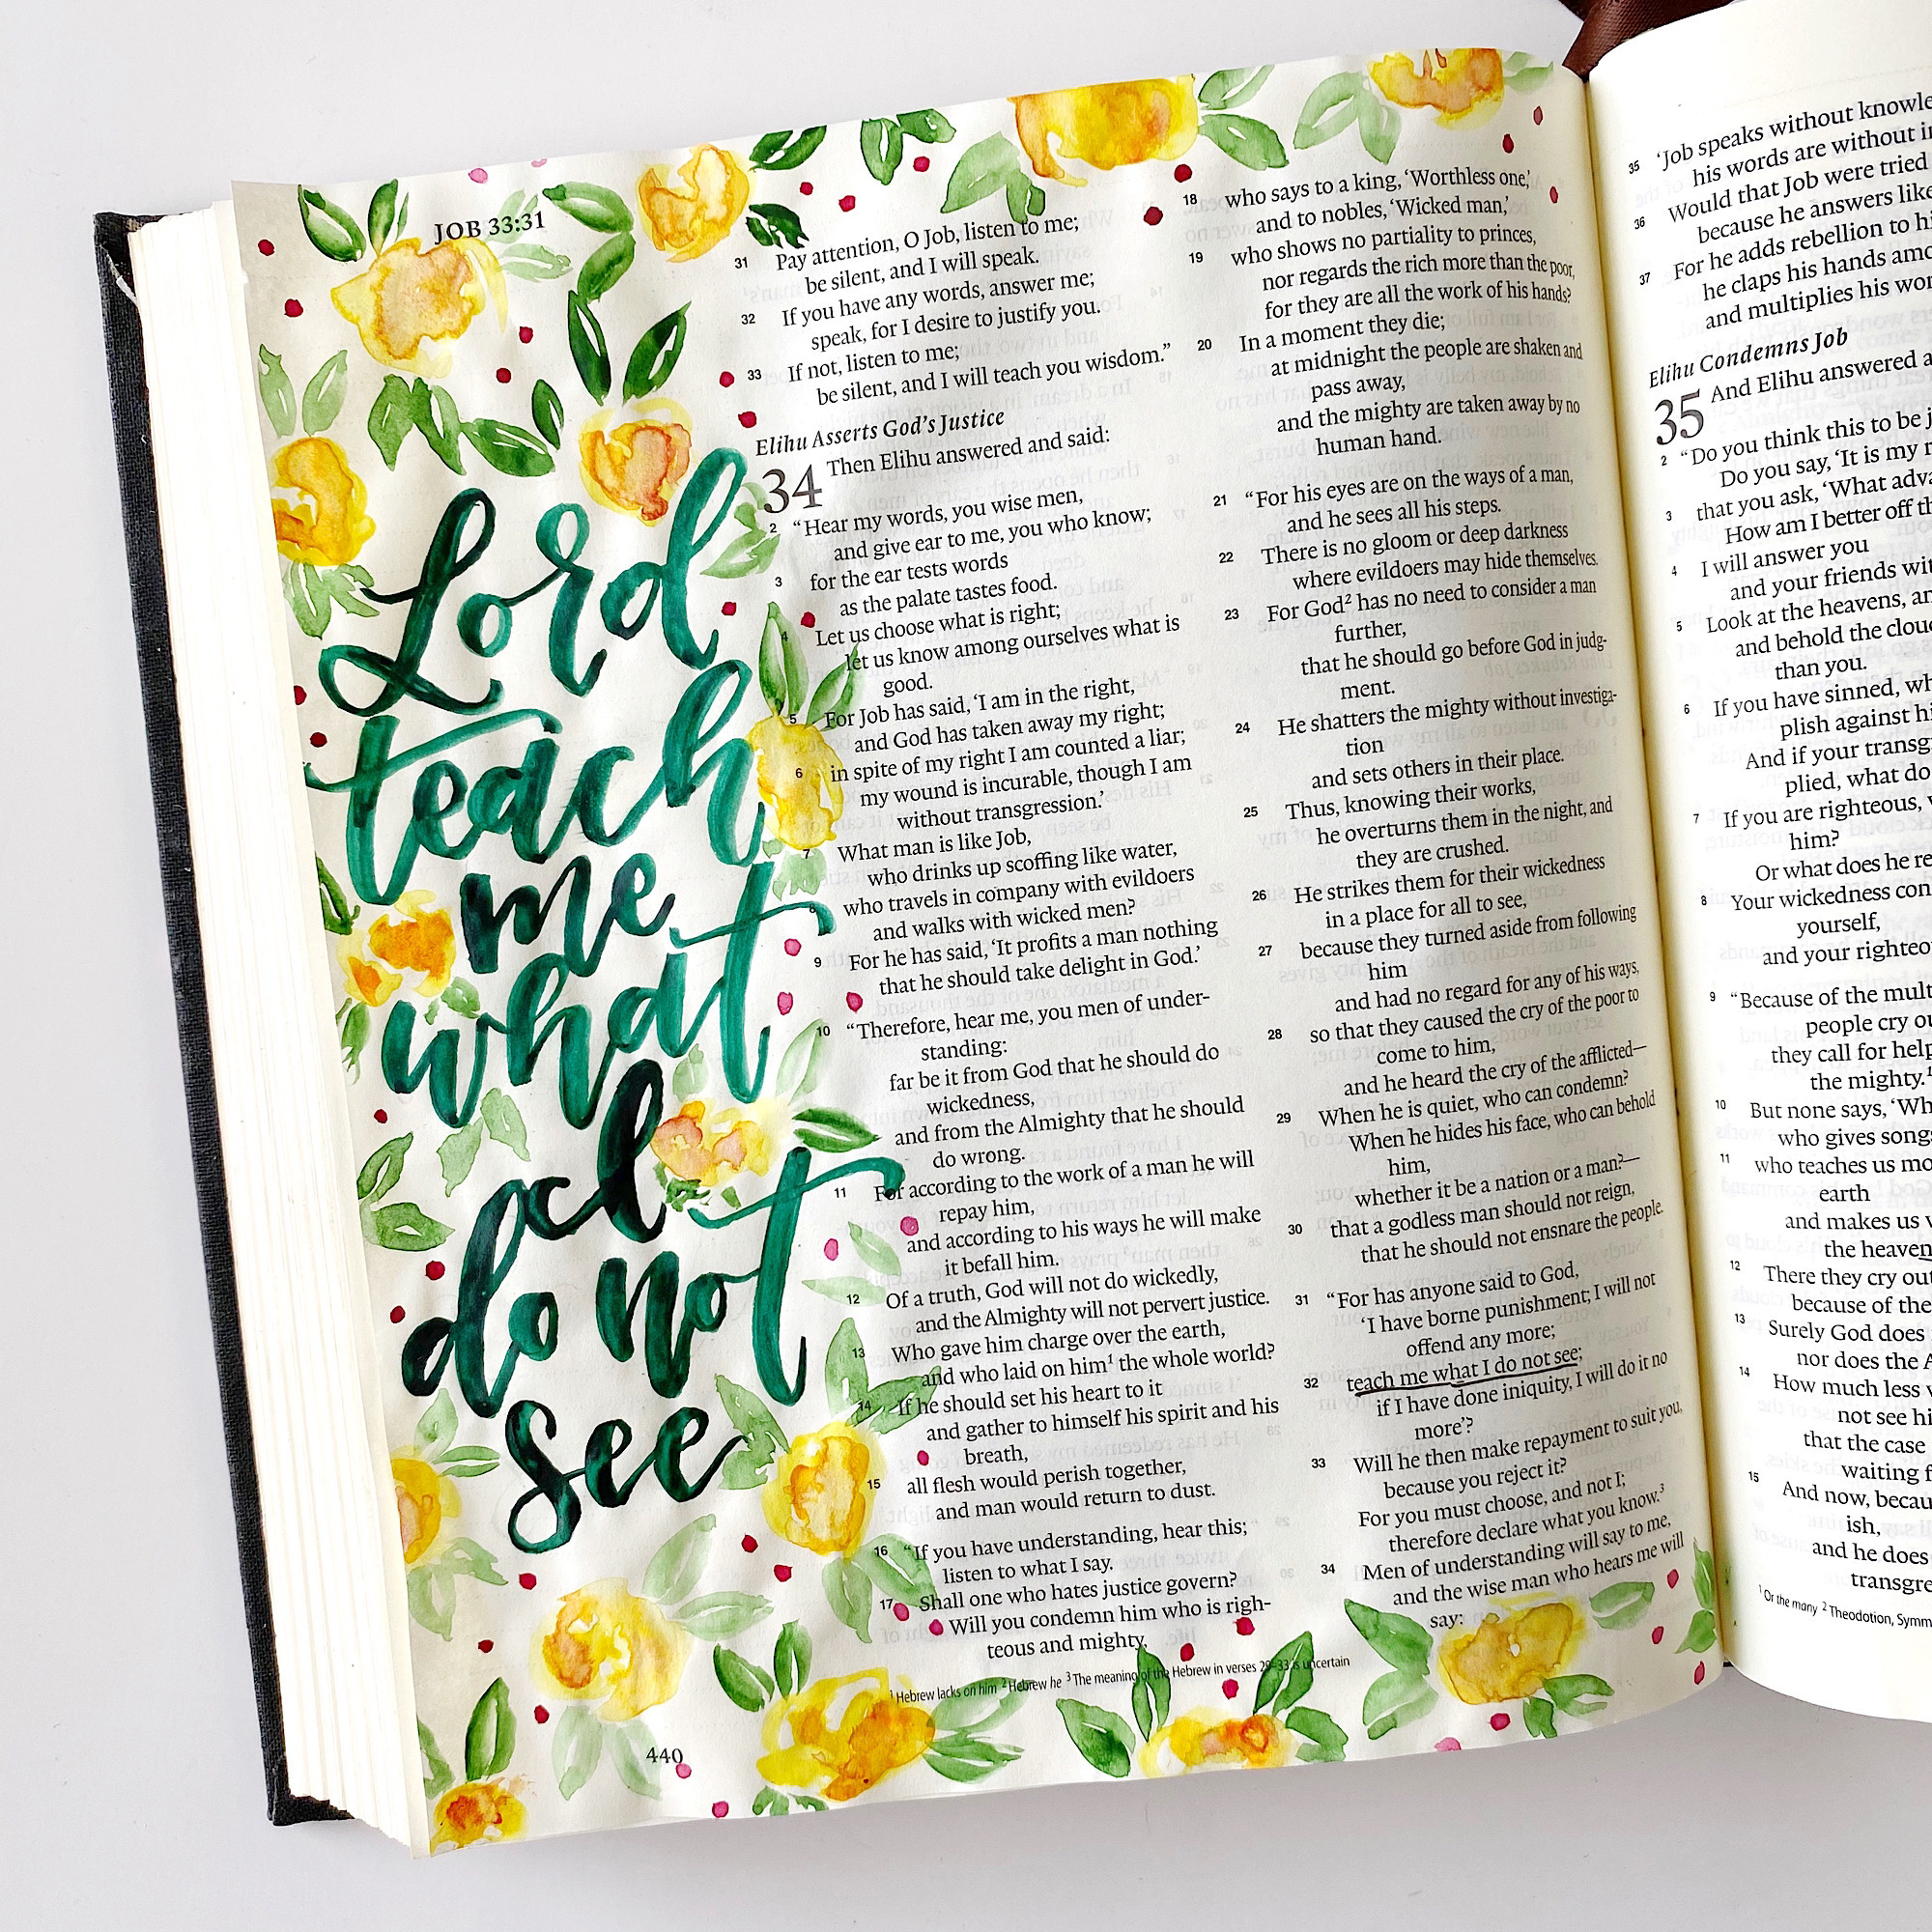 JOB 33:31
Lord
teach
me
what
I
do not
see
31 Pay attention, O Job, listen to me;
be silent, and I will speak.
32 If you have any words, answer me;
speak, for I desire to justify you.
33 If not, listen to me;
be silent, and I will teach you wisdom.”
Elihu Asserts God’s Justice
34 Then Elihu answered and said:
2 “Hear my words, you wise men,
and give ear to me, you who know;
3 for the ear tests words
as the palate tastes food.
4 Let us choose what is right;
let us know among ourselves what is
good.
5 For Job has said, ‘I am in the right,
and God has taken away my right;
6 in spite of my right I am counted a liar;
my wound is incurable, though I am
without transgression.’
7 What man is like Job,
who drinks up scoffing like water,
8 who travels in company with evildoers
and walks with wicked men?
9 For he has said, ‘It profits a man nothing
that he should take delight in God.’
10 “Therefore, hear me, you men of under-
standing:
far be it from God that he should do
wickedness,
and from the Almighty that he should
do wrong.
11 For according to the work of a man he will
repay him,
and according to his ways he will make
it befall him.
12 Of a truth, God will not do wickedly,
and the Almighty will not pervert justice.
13 Who gave him charge over the earth,
and who laid on him¹ the whole world?
14 If he should set his heart to it
and gather to himself his spirit and his
breath,
15 all flesh would perish together,
and man would return to dust.
16 “If you have understanding, hear this;
listen to what I say.
17 Shall one who hates justice govern?
Will you condemn him who is righ-
teous and mighty,
18 who says to a king, ‘Worthless one,’
and to nobles, ‘Wicked man,’
19 who shows no partiality to princes,
nor regards the rich more than the poor,
for they are all the work of his hands?
20 In a moment they die;
at midnight the people are shaken and
pass away,
and the mighty are taken away by no
human hand.
21 “For his eyes are on the ways of a man,
and he sees all his steps.
22 There is no gloom or deep darkness
where evildoers may hide themselves.
23 For God² has no need to consider a man
further,
that he should go before God in judg-
ment.
24 He shatters the mighty without investiga-
tion
and sets others in their place.
25 Thus, knowing their works,
he overturns them in the night, and
they are crushed.
26 He strikes them for their wickedness
in a place for all to see,
27 because they turned aside from following
him
and had no regard for any of his ways,
28 so that they caused the cry of the poor to
come to him,
and he heard the cry of the afflicted—
29 When he is quiet, who can condemn?
When he hides his face, who can behold
him,
whether it be a nation or a man?—
30 that a godless man should not reign,
that he should not ensnare the people.
31 “For has anyone said to God,
‘I have borne punishment; I will not
offend any more;
32 teach me what I do not see;
if I have done iniquity, I will do it no
more’?
33 Will he then make repayment to suit you,
because you reject it?
For you must choose, and not I;
therefore declare what you know.³
34 Men of understanding will say to me,
and the wise man who hears me will
say:
¹ Hebrew lacks on him ² Hebrew he ³ The meaning of the Hebrew in verses 29–33 is uncertain
440
35 ‘Job speaks without
his words are without
36 Would that Job were tried
because he answers like
37 For he adds rebellion to
he claps his hands
and multiplies his
Elihu Condemns Job
35 And Elihu answered
2 “Do you think this to be
Do you say, ‘It is my
3 that you ask, ‘What
How am I better off
4 I will answer you
and your friends
5 Look at the heavens,
and behold the
than you.
6 If you have sinned,
plish against
And if your
plied, what do
7 If you are righteous,
him?
Or what does he
8 Your wickedness
yourself,
and your
9 “Because of the
people cry
they call for
the mighty.¹
10 But none says,
who gives
11 who teaches us
earth
and makes us
the
12 There they cry
because of
13 Surely God does
nor does the
14 How much less
not see
that the case
waiting
15 And now,
ish,
and he does
¹ Or the many ² Theodotion,